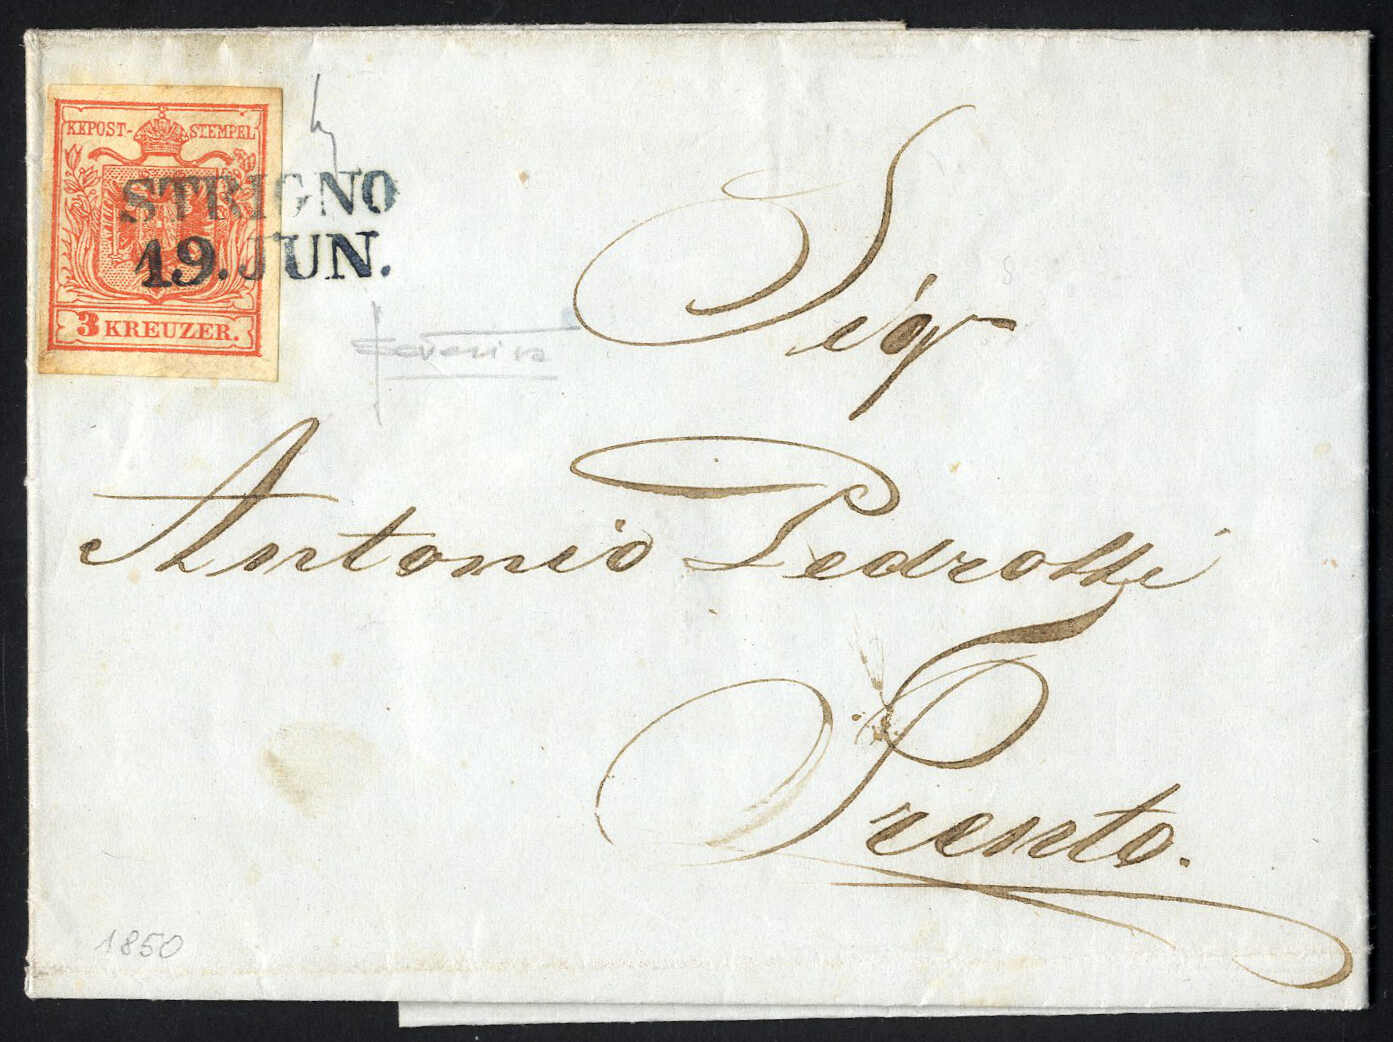 KKPOST-STEMPEL
STRIGNO
19. JUN.
3 KREUZER.
Sigr
Antonio Pedrotti
Trento.
1850